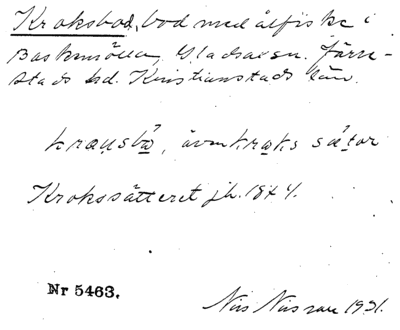 Kroksbod, bod med ålfiske i
Baskemölla, Gladsax sn. Järre-
stads hd. Kristianstads län.
krau̯sbå, även kraks såtor
Krokssätteret jb. 1844.
Nr 5463.
Nils Nilsson 1931.